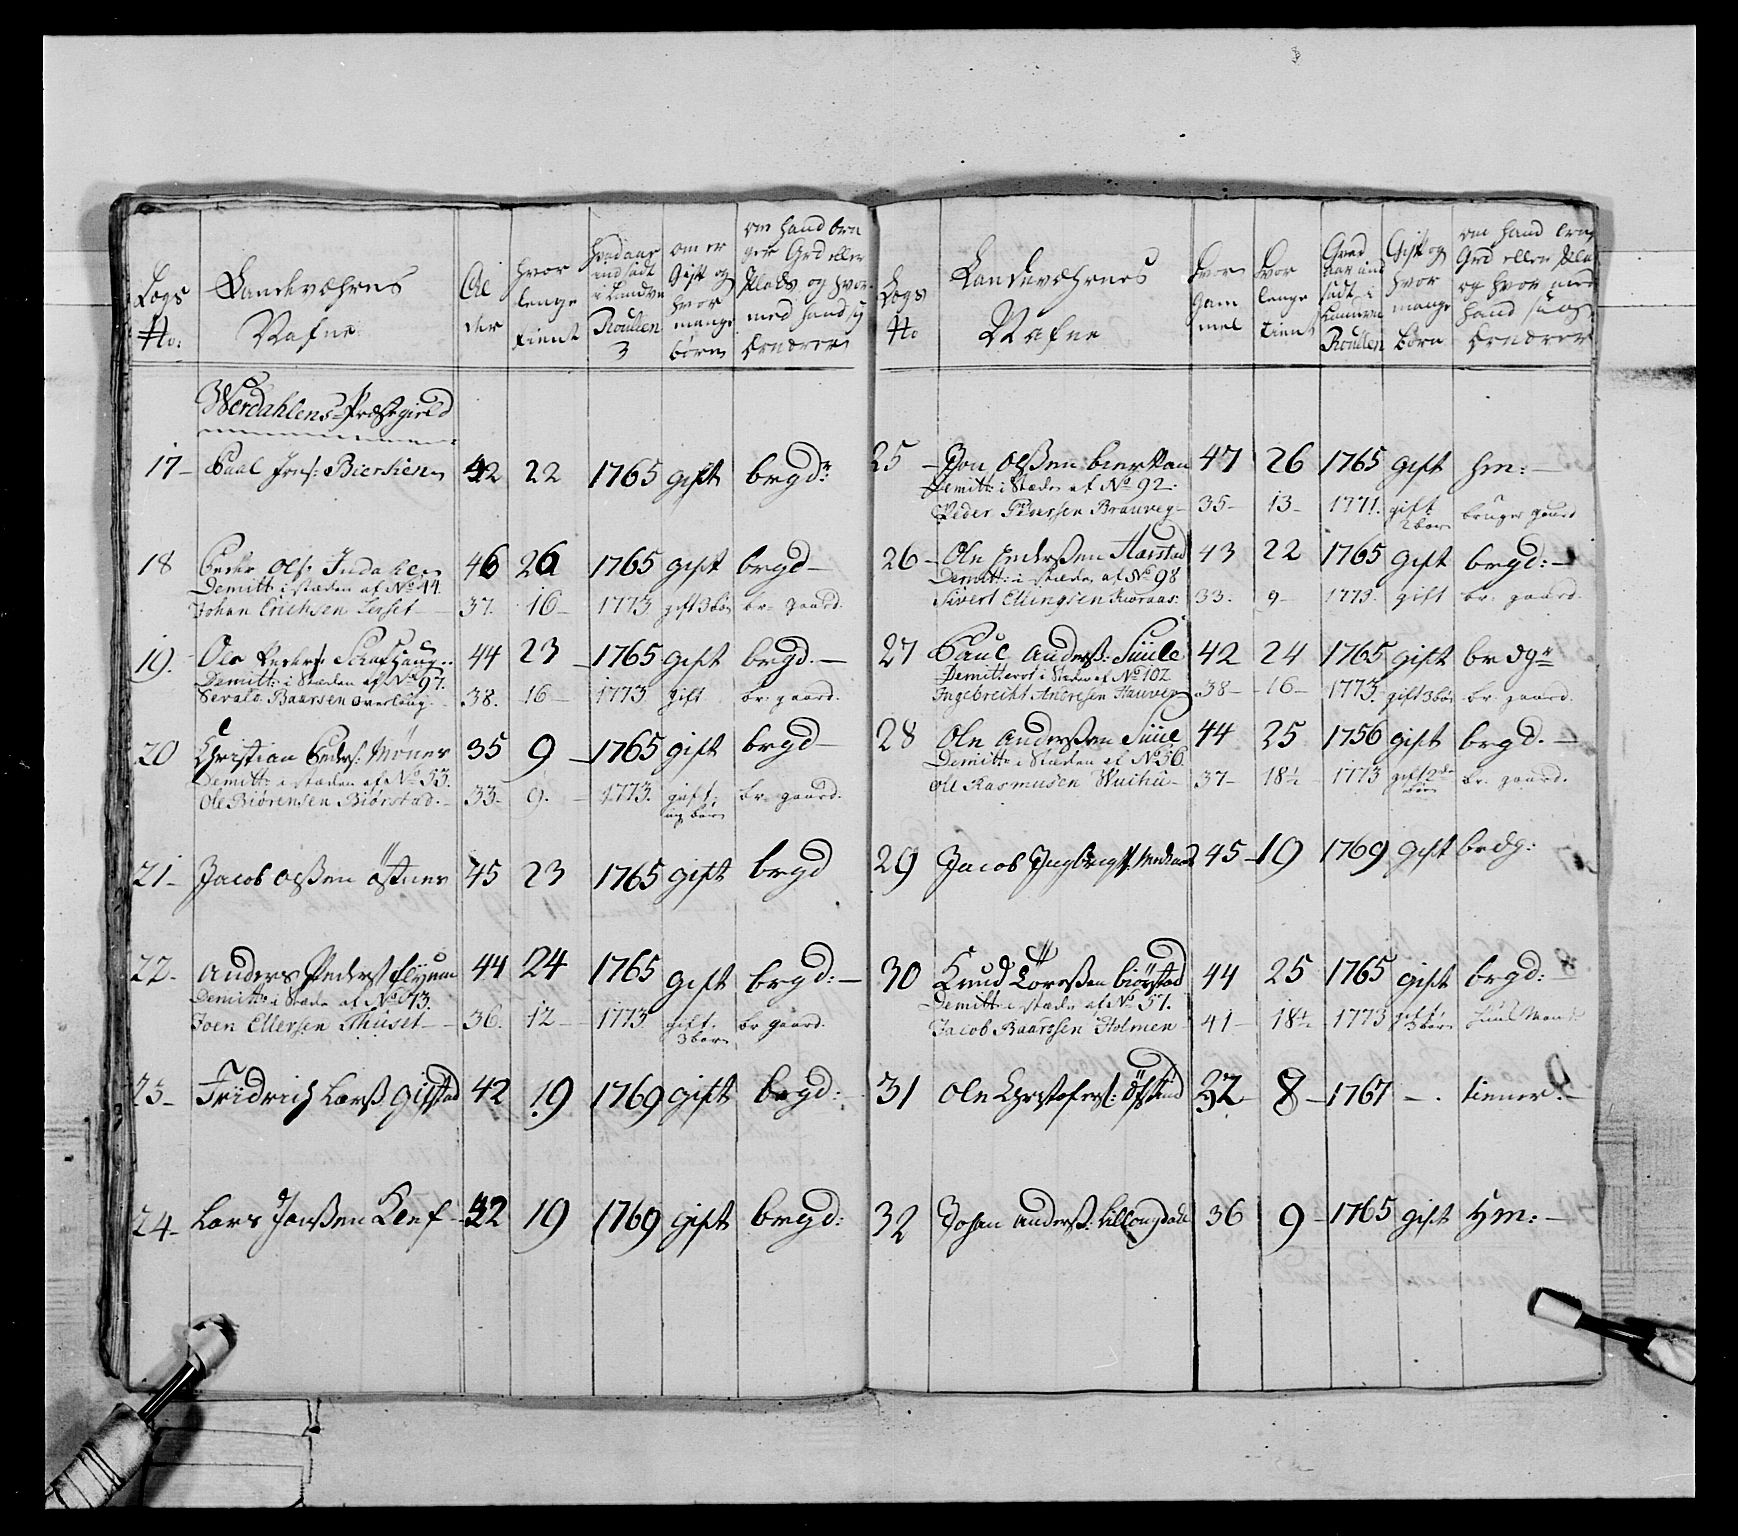 Logs No:
Landeværnes Nafne
Al der
hvor lenge tient
hvad aar ind sadt i Landv Roullen 3
om er Gift og hvor mange børn
om hand bru ger Grd eller Plads og hvor med hand sig Ernærer
Werdahlens Præstegield
17 - Paal Jons: Biertien 42 22 1765 gift brgdr
18 Peder Ols: Indahlen 46 26 1765 gift brgd -
Demitt: i stæden af No 44.
Johan Erichsen Lerset - 37. 16 - 1773 gift 3 bør br. gaard.
19. Ole Peders: 44 23 - 1765 gift brgd. -
Demitt: i Stæden af No 97.
Sevald Baarsen overlong. - 38. 16 - 1773 gift br. gaard.
20 Christian Peders: Møner 35 9 - 1765 gift brgd -
Demitt: i stæden af No 53.
Ole Biörensen Biörstad. - 33. 9. - 1773. gift. ing børn br. gaard.
21 - Jacob Olßen östner 45 23 1765 gift brgd
22 - Anders Pederß flyum 44 24 1765 gift brgd: -
Demitt: i Stæden af No 73.
Joen Ellersen Thüset - 36. 12 - 1773 gift. 3 børn br gaard.
23 - Fridrich Larß Gistad 42 19 1769 gift brgd:
24 - Lars Janßen Leuf - 32 19 1769 gift brgd:
Logs No
Landeværnes Nafne
hvor gam mel
hvor lenge tient
hvad aar ind sadt i Landvæ Roullen
Gift og hvor mange Børn
om hand brug Grd eller Pla og hvor med hand sig Ernærer
25 - Jon Olßen bierkan 47 26 1765 gift hm: -
Demitt: i Stæden af No 92.
Peder Pedersen Brauveg - 35 - 13 - 1771. gift 2 børn brüger gaard
26 - Ole Pederßen Harstad 43 22 1765 gift brgd: -
Demitt: i stæden af No 98
Sivert Ellingsen Kioraas: 33. 9 - 1773. gift br. gaard.
27 Paul Anderß: Süüle 42 24 1765 gift brdgr
Demitteret i Stæden af No 102
Ingebrecht Andresen Hauven 38 - 16 - 1773. gift 3 bør br. gaard.
28 Ole Anderßen Süül 44 25 1756 gift brgd. -
Demitt: i Stæden af No 56.
Ole Rasmusen Wuchu - 37 - 18½ - 1773 gift 2de børn br. gaard.
29 Jacob 45 - 19 1769 gift brdg:
30 Knud Törreßen biörstad 44 25 1765 gift brgd:
Demitt: i stæden af No 57.
Jacob Baarssen Holmen 41 - 18½ - 1773 gift 3 børn
31 Ole Christofers: 32 - 8 - 1767 - . tiener. -
32 Johan Anderß: Lillongdall 36 9 - 1765 gift Hm: -